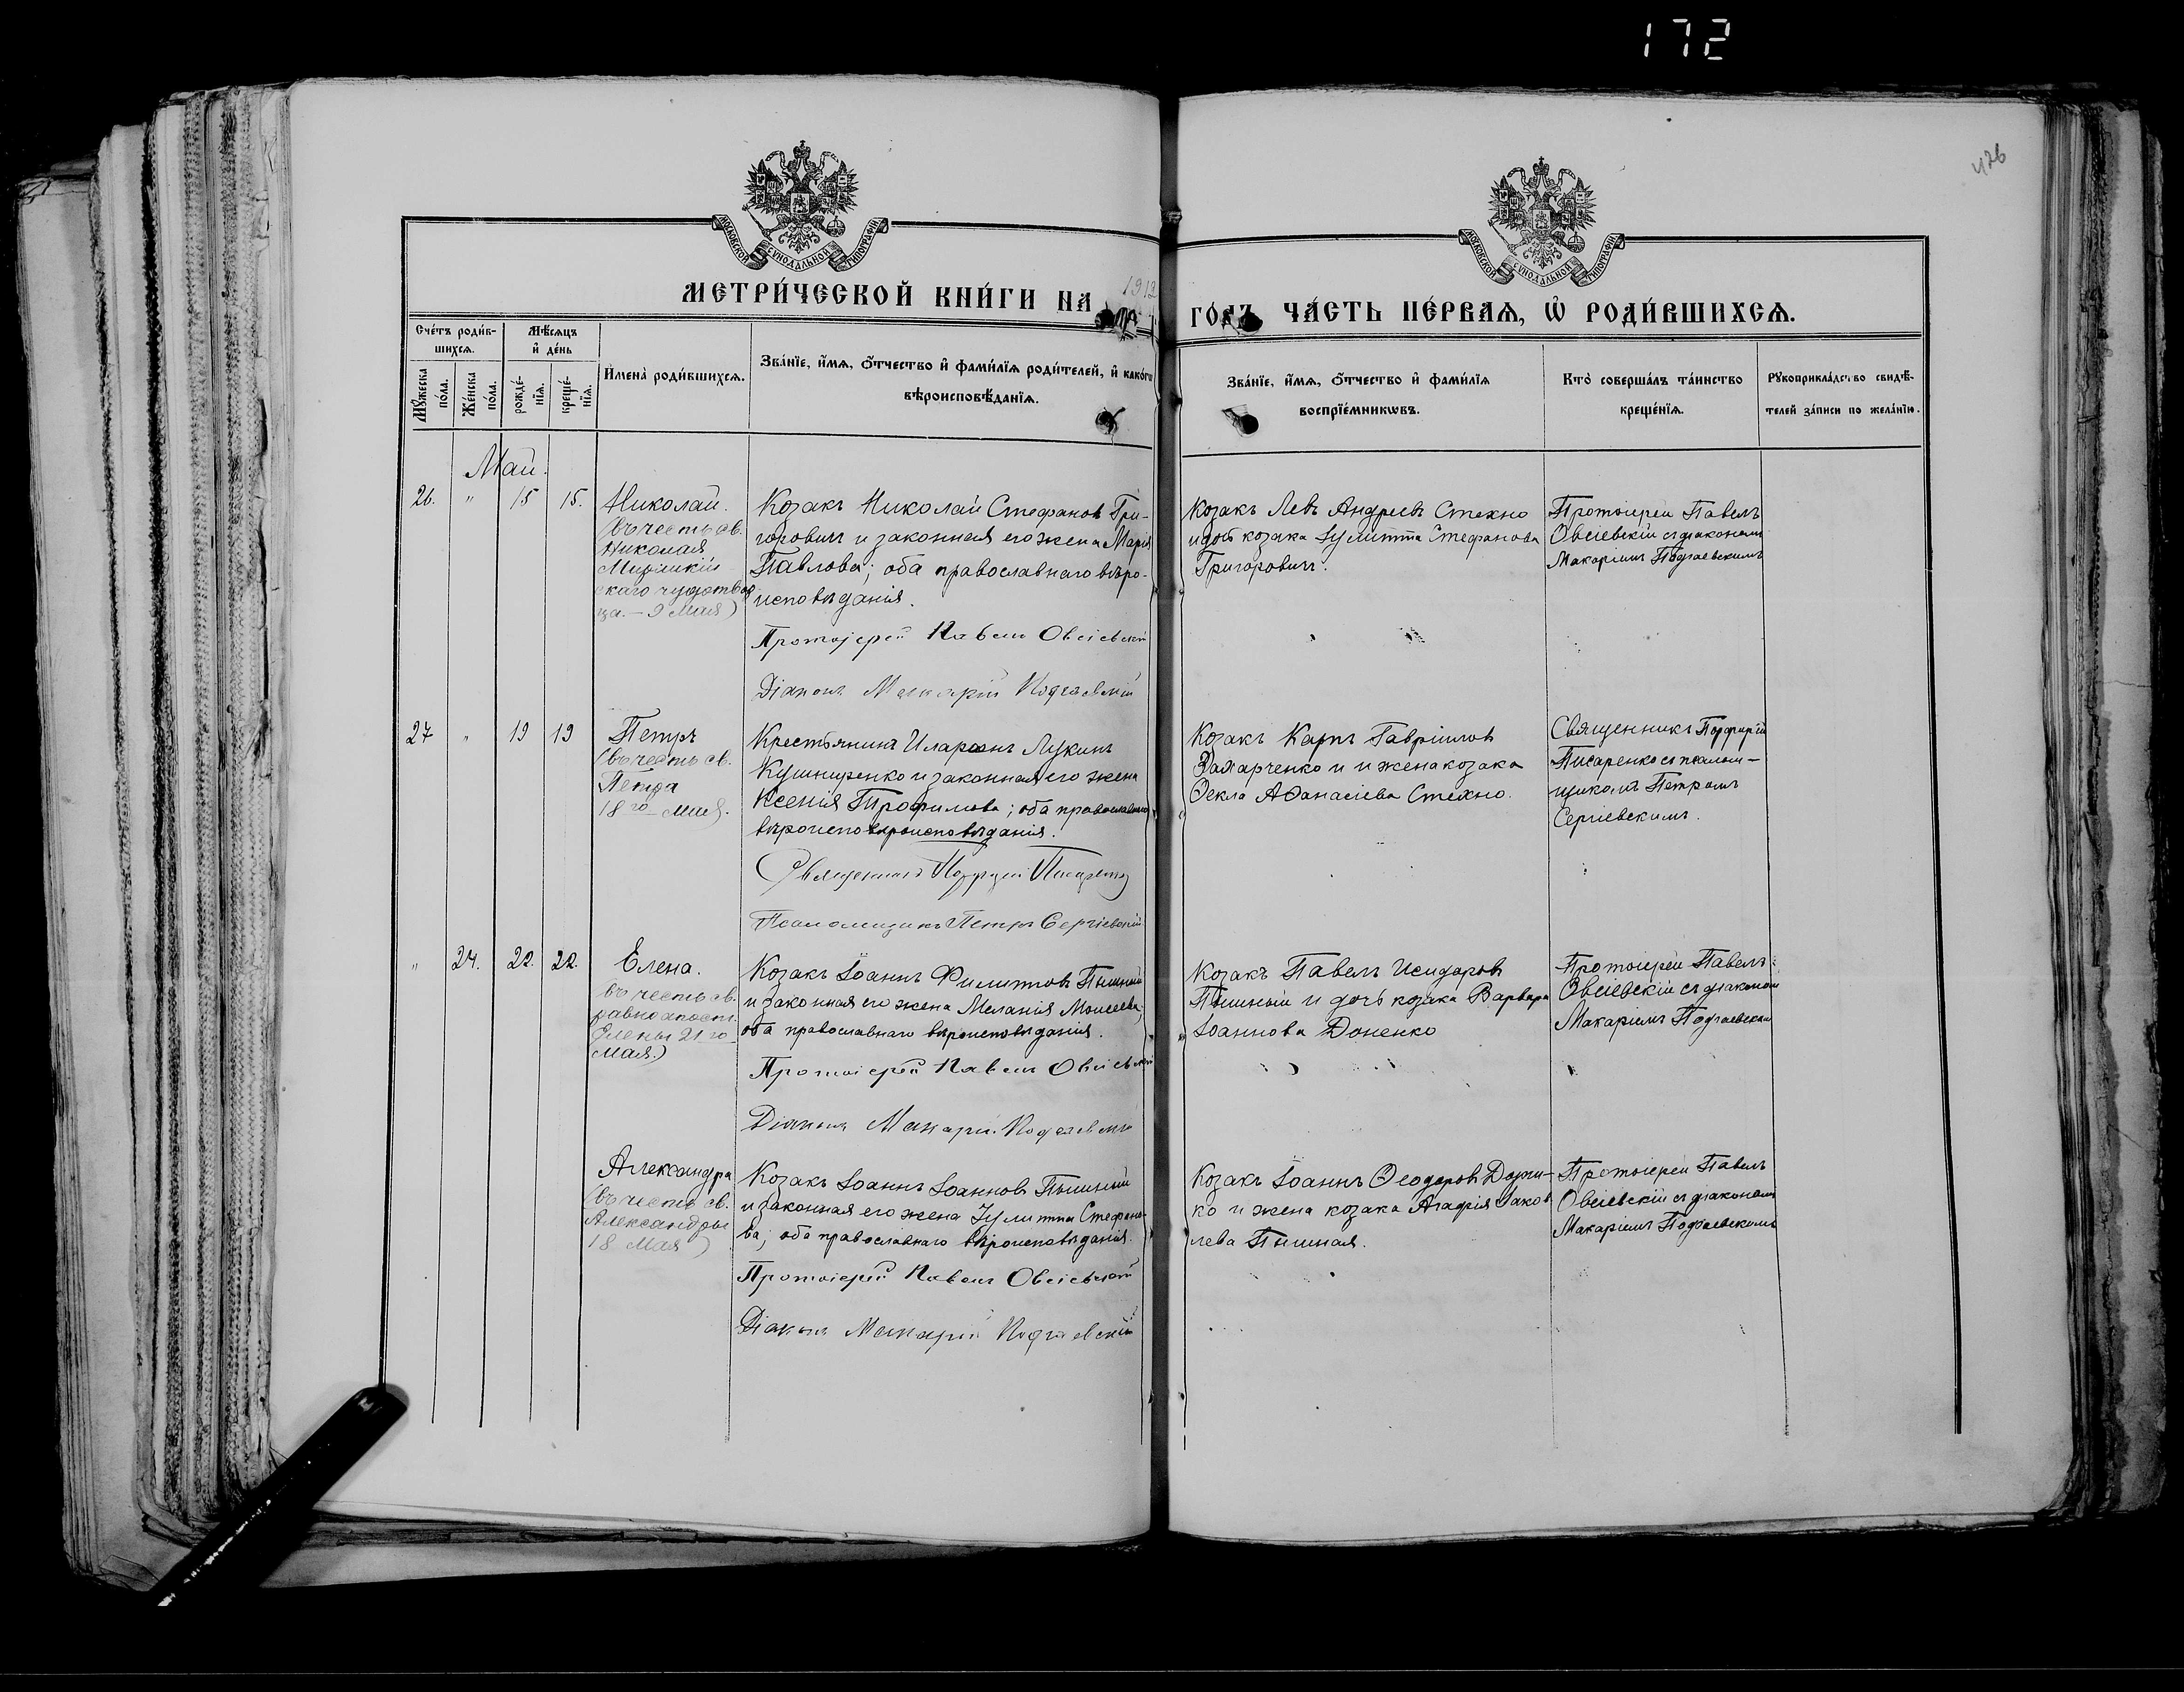 172
426
МОСКОВСКОЙ СѴНОДАЛЬНОЙ ТИПОГРАФІИ
МОСКОВСКОЙ СѴНОДАЛЬНОЙ ТИПОГРАФІИ
МЕТРИ́ЧЕСКОЙ КНИ́ГИ НА 1912 ГОДЪ ЧА́СТЬ ПЕ́РВАЯ, Ѡ҆ РОДИ́ВШИХСЯ.
Сче́тъ роди́в-
шихся.
Мѣ́сяцъ
и҆ де́нь
Мꙋ́жеска
по́ла.
Же́нска
по́ла.
рожде́-
нїя.
креще́-
нїя.
И҆мена̀ роди́вшихся.
Зва́нїе, и҆́мя, ѻ҆́тчество и҆ фами́лїя роди́телей, и҆ како́гѡ
вѣроисповѣ́данїя.
Зва́нїе, и҆́мя, ѻ҆́тчество и҆ фами́лїя
воспрїе́мникѡвъ.
Кто̀ соверша́лъ та́инство
креще́нїя.
Рꙋкоприкла́дство свидѣ́-
телей за́писи по жела́нїю.
Май.
26. " 15 15.
Николай.
(въ честь св.
Николая
Мѵрликій-
скаго чудотвор
ца. – 9 Мая)
Козакъ Николай Стефановъ Гри-
горовичъ и законная его жена Марія
Павлова; оба православнаго вѣро-
исповѣданія.
Протоіерей Павелъ Овсіевскій
Діаконъ Макарій Подгаевскій
Козакъ Левъ Андреевъ Стехно
и дочь козака Іулитта Стефанова
Григоровичъ.
Протоіерей Павелъ
Овсіевскій съ діакономъ
Макаріемъ Подгаевскимъ
27 " 19 19
Петръ
(въ честь св.
Петра
18го Мая).
Крестьянинъ Иларіонъ Лукинъ
Кушниренко и законная его жена
Ксенія Трофимова; оба православнаго
вѣроисповѣроисповѣданія.
Священникъ Порфирій Писаренко
Псаломщикъ Петръ Сергіевскій
Козакъ Карпъ Гавріиловъ
Захарченко и и жена козака
Ѳекла Аѳанасіева Стехно.
Священникъ Порфирій
Писаренко съ псалом-
щикомъ Петромъ
Сергіевскимъ.
" 24. 22. 22.
Елена.
въ честь св.
равноапост.
Елены 21го
Мая.)
Козакъ Іоаннъ Филипповъ Пышный
и законная его жена Меланія Моисеева;
оба православнаго вѣроисповѣданія.
Протоіерей Павелъ Овсіевскій
Діаконъ Макарій Подгаевскій
Козакъ Павелъ Исидоровъ
Пышный и дочь козака Варвара
Іоаннова Доненко
Протоіерей Павелъ
Овсіевскій съ діакономъ
Макаріемъ Подгаевскимъ
Александра
(въ честь св.
Александры
18 Мая)
Козакъ Іоаннъ Іоанновъ Пышный
и законная его жена Іулитта Стефано-
ва; оба православнаго вѣроисповѣданія.
Протоіерей Павелъ Овсіевскій
Діаконъ Макарій Подгаевскій
Козакъ Іоаннъ Ѳеодоровъ
ко и жена козака Агафія Іаков-
лева Пышная.
Протоіерей Павелъ
Овсіевскій съ діакономъ
Макаріемъ Подгаевскимъ